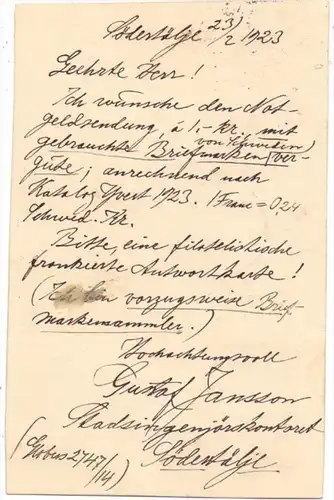 Södertälje 23/2 1923
Geehrte Herr!
Ich wünsche den Not-
geldsendung, à 1,- Kr, mit
von Schweden
gebrauchte Briefmarken (ver-
güte; anrechnend nach
Katalog Yvert 1923. 1 Franc = 0,24
Schwed. Kr.
Bitte, eine filatelistische
frankierte Antwortkarte!
(Ich bin vorzugsweise Brief-
markensammler.)
Hochachtungsvoll
Gustaf Jansson
Stadsingenjörskontoret
Södertälje
(Globus 2747/14)